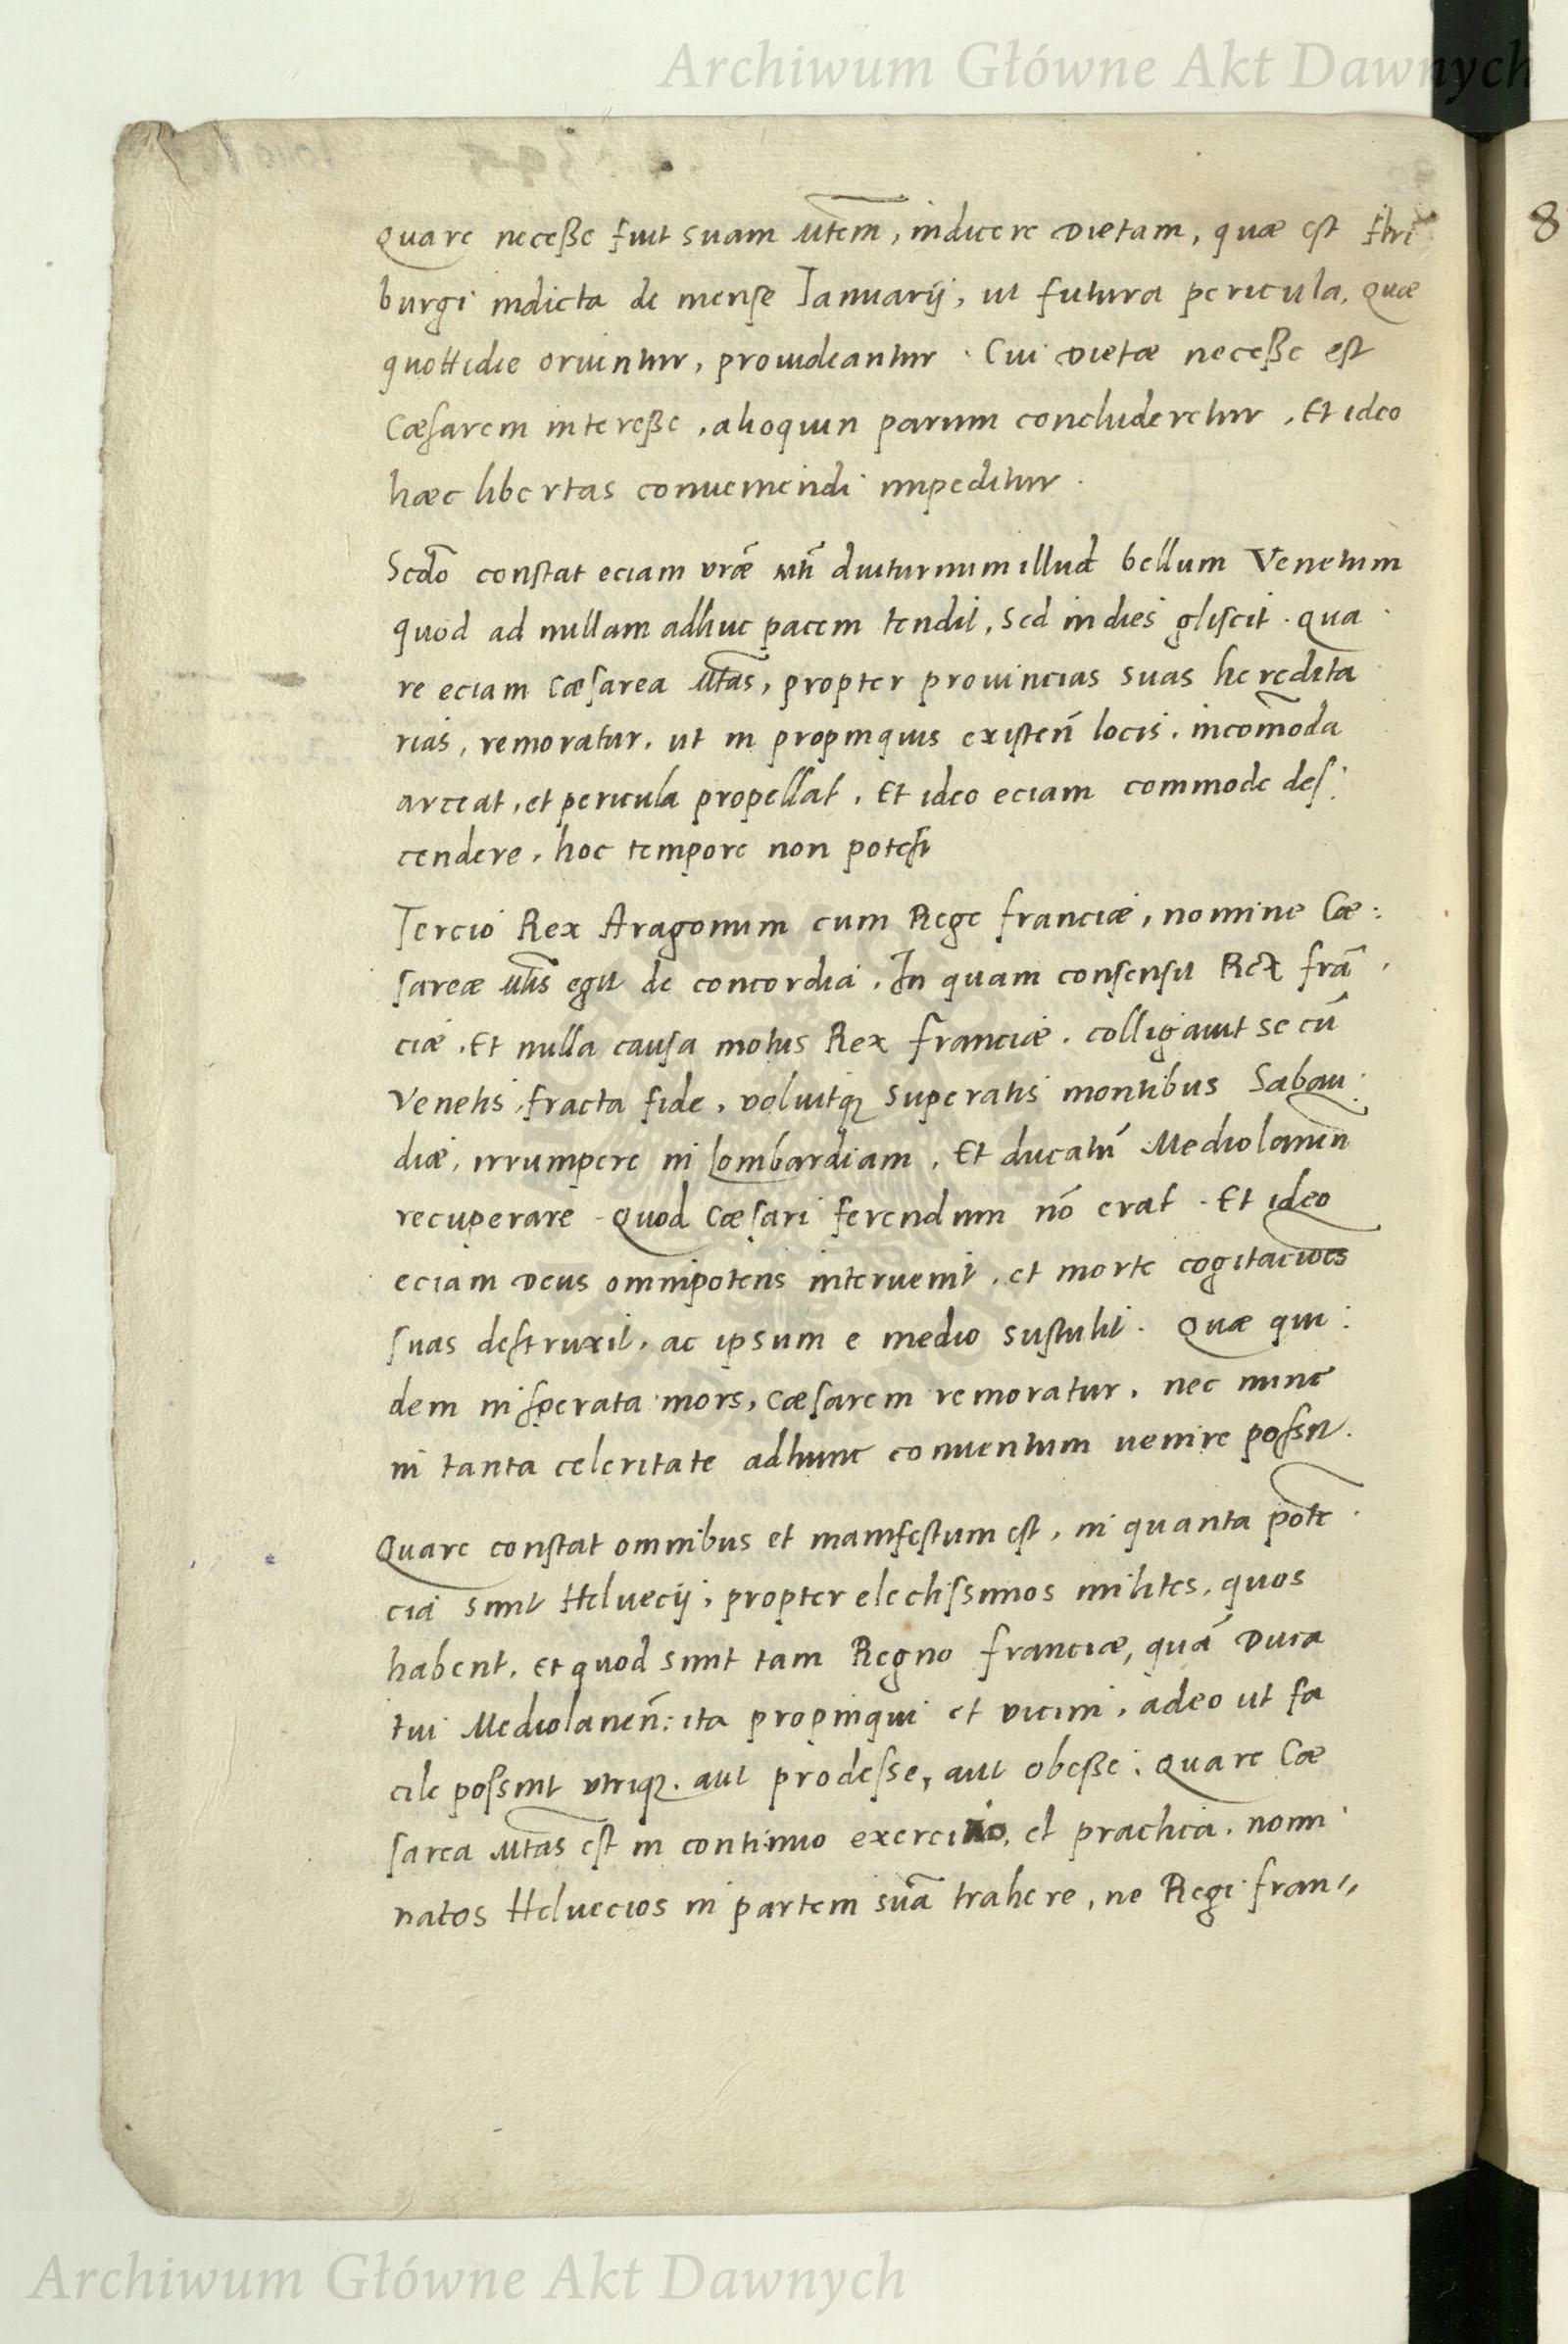 Archiwum Główne Akt Dawnych
8
Quare necesse fuit suam Mtem, indicere Dietam, quæ est fri
burgi indicta de mense Ianuarij, ut futura pericula, Quæ
quottidie oriuntur, prouideantur . Cui Dietæ necesse est
Cæsarem interesse, alioquin parum concluderetur, Et ideo
hæc libertas conueniendi impeditur .
Scdo constat eciam vræ Mti diuturnum illud bellum Venetum
quod ad nullam adhuc pacem tendit, sed in dies gliscit . qua
re eciam Cæsarea Mtas, propter prouincias suas heredita
rias, remoratur, ut in propinquis existen locis, incomoda
arceat, et pericula propellat, Et ideo eciam commode des:
cendere, hoc tempore non potest
Tercio Rex Aragonum cum Rege franciæ, nomine Cæ:
sareæ Mtis egit de concordia, In quam consensit Rex frã
ciæ. Et nulla causa motus Rex franciæ, colligauit se cũ
Venetis, fracta fide, voluitq; superatis montibus Sabau:
diæ, irrumpere in Lombardiam, Et ducatũ Mediolanen
recuperare . Quod Cæsari ferendum nõ erat . Et ideo
eciam Deus omnipotens interuenit, et morte cogitacioes
suas destruxit, ac ipsum e medio sustulit . Quæ qui:
dem insperata mors, Cæsarem remoratur, nec nunc
in tanta celeritate adhunc conuentum uenire possit.
Quare constat omnibus et manifestum est, in quanta pote
cia sunt Heluecij, propter electissimos milites, quos
habent, Et quod sunt tam Regno franciæ, quã Duca
tui Mediolanen: ita propinqui et vicini, adeo ut fa
cile possint vtriq; aut prodesse, aut obesse: Quare Cæ
sarea Mtas est in continuo exercitio, et practica, nomi
natos Heluecios in partem suã trahere, ne Regi fran,,
Archiwum Główne Akt Dawnych